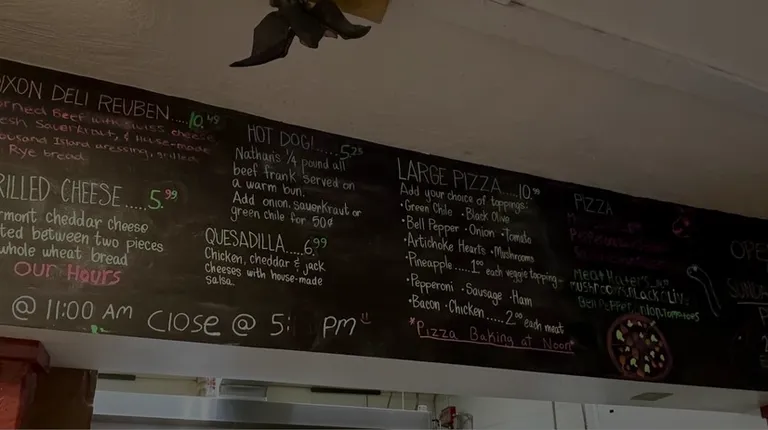 IXON DELI REUBEN....10.49
orned Beef with swiss cheese
esh Sauerkraut, & House-made
ousand Island dressing, grilled
Rye bread
RILLED CHEESE....5.99
rmont cheddar cheese
ted between two pieces
whole wheat bread
Our Hours
@ 11:00 AM
Close @ 5: PM
HOT DOG!.....5.25
Nathan's 1/4 pound all
beef frank served on
a warm bun.
Add onion, sauerkraut or
green chile for 50¢
QUESADILLA....6.99
Chicken, cheddar & jack
cheeses with house-made
salsa.
LARGE PIZZA....10.99
Add your choice of toppings:
•Green Chile •Black Olive
•Bell Pepper •Onion •Tomato
•Artichoke Hearts •Mushrooms
•Pineapple....1.00 each veggie topping
•Pepperoni •Sausage •Ham
•Bacon •Chicken.....2.00 each meat
*Pizza Baking at Noon
PIZZA
Meat
mushrooms, Black Olive
Bell Pepper, onion, tomatoes
OPE
SUND